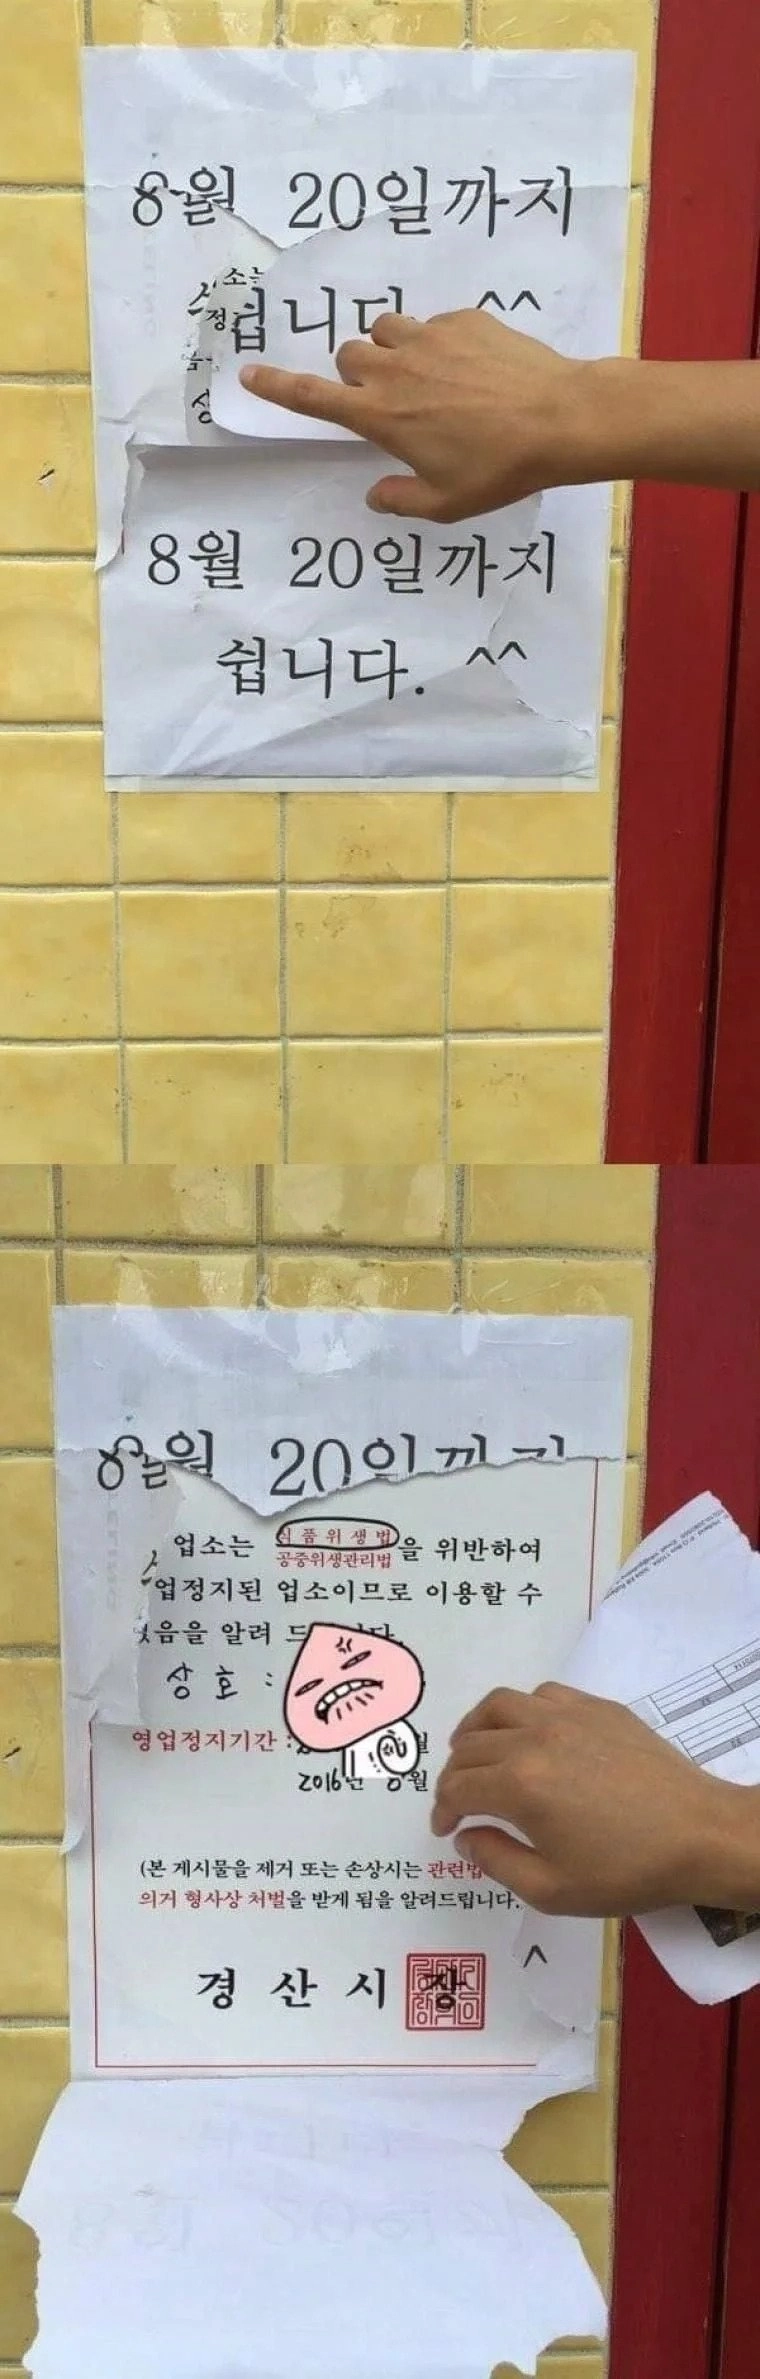 8월 20일까지
쉽니다. ^^
8월 20일까지
쉽니다. ^^
8월 20일까지
업소는 식품위생법
공중위생관리법 을 위반하여
업정지된 업소이므로 이용할 수
없음을 알려 드
상호 :
영업정지기간 :
2016년 월
(본 게시물을 제거 또는 손상시는 관련법
의거 형사상 처벌을 받게 됨을 알려드립니다.
^
경산시장